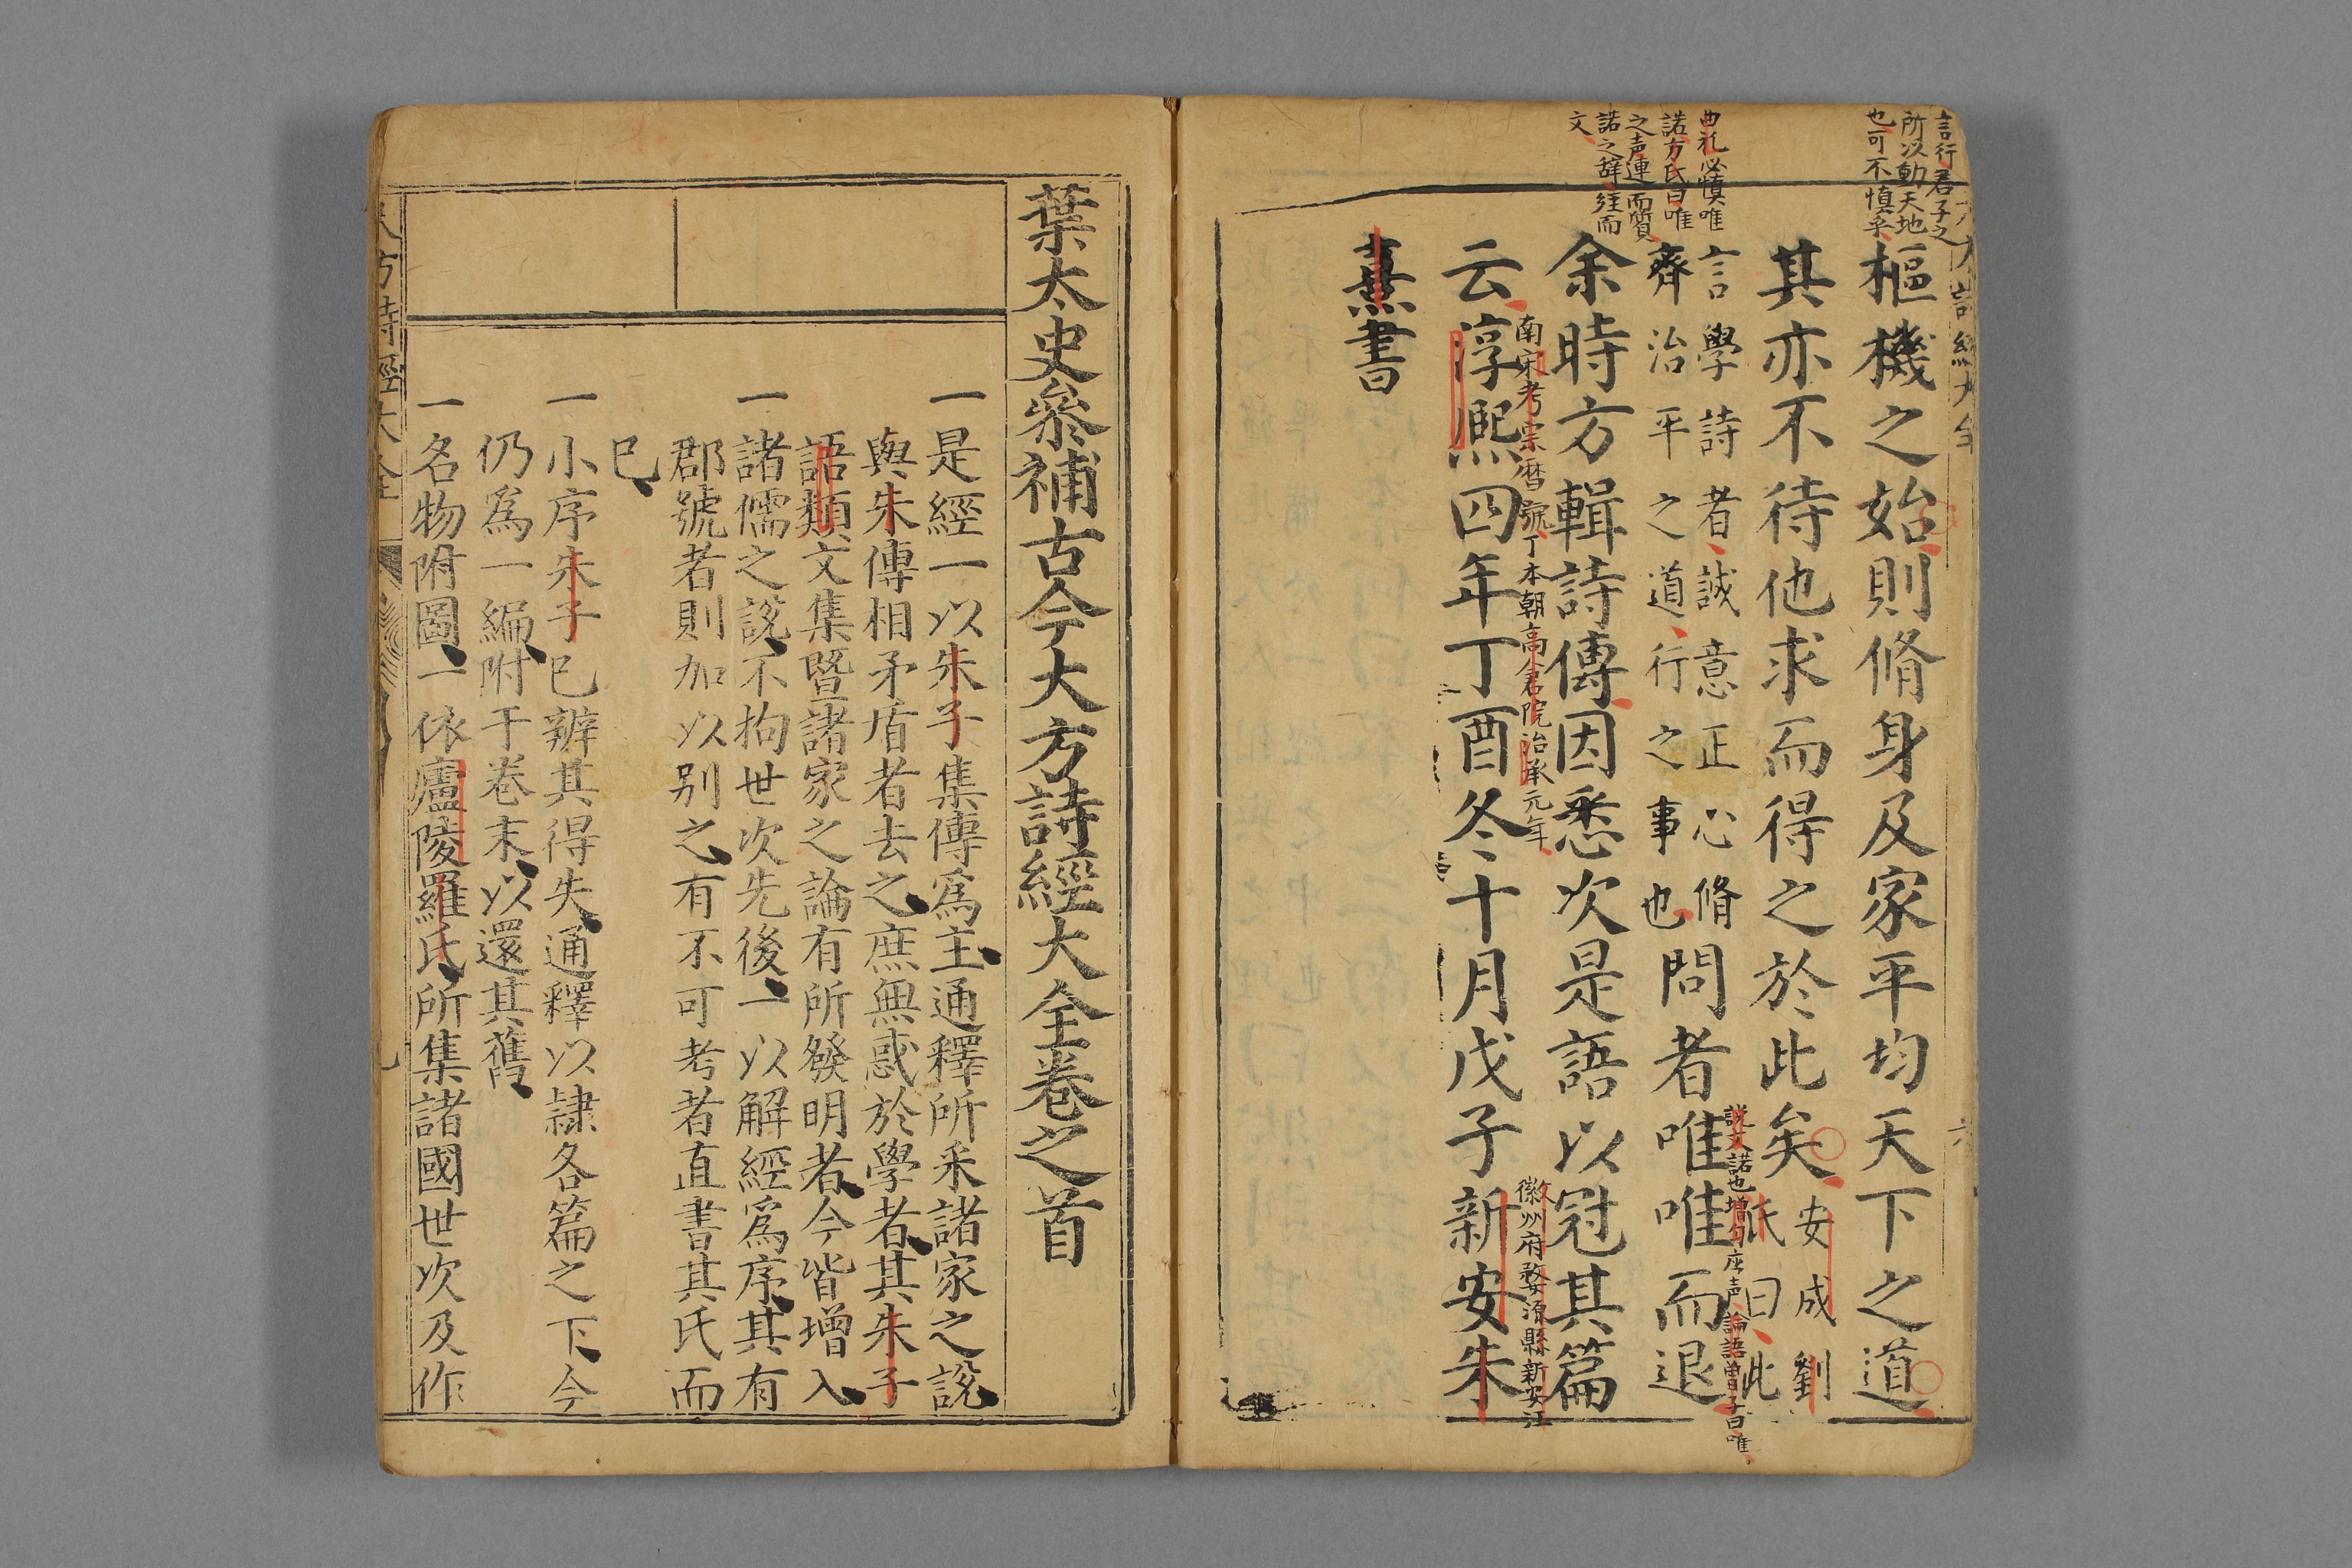 言行君子之
所以動天地
也可不慎乎
樞機之始則脩身及家平均天下之道
其亦不待他求而得之於此矣 安成劉
氏曰此
言學詩者誠意正心脩
齊治平之道行之事也
問者唯唯而退
説文諾也増句座声論語曽子曰唯
曲礼必慎唯
諾方氏曰唯
之声連而質
諾之辞経而
文
余時方輯詩傳因悉次是語以冠其篇
云淳熈四年丁酉冬十月戊子新安朱
南宋考宗暦號丁本朝高倉院治承元年
徽州府婺源縣新安江
熹書
葉太史叅補古今大方詩經大全卷之首
一是經一以朱子集傳爲主通釋所釆諸家之說
與朱傳相矛盾者去之庶無惑於學者其朱子
語類文集曁諸家之論有所發明者今皆增入
一諸儒之說不拘世次先後一以解經爲序其有
郡號者則加以别之有不可考者直書其氏而
巳
一小序朱子巳辨其得失通釋以隷各篇之下今
仍爲一編附于卷末以還其舊
一名物附圖一依廬陵羅氏所集諸國世次及作